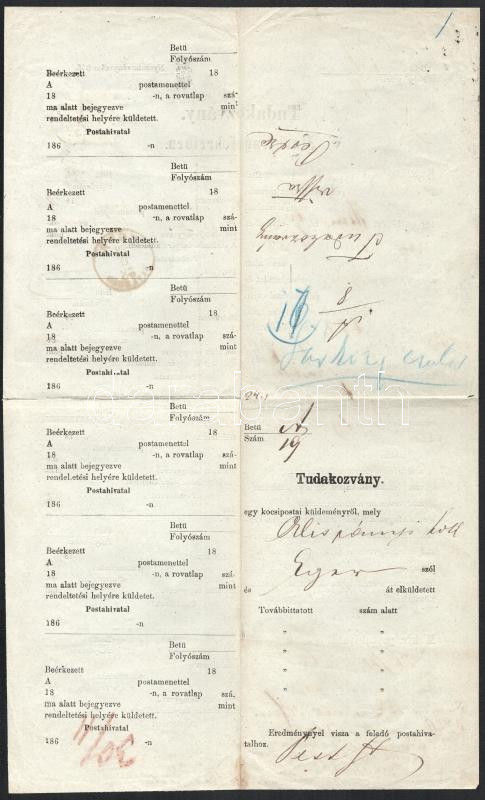 Betü
Folyószám
Beérkezett 18
A postamenettel
18 -n, a rovatlap szá-
ma alatt bejegyezve mint
rendeltetési helyére küldetett.
Postahivatal
186 -n
Betü
Folyószám
Beérkezett 18
A postamenettel
18 -n, a rovatlap szá-
ma alatt bejegyezve mint
rendeltetési helyére küldetett.
Postahivatal
186 -n
Betü
Folyószám
Beérkezett 18
A postamenettel
18 -n, a rovatlap szá-
ma alatt bejegyezve mint
rendeltetési helyére küldetett.
Postahivatal
186 -n
Betü
Folyószám
Beérkezett 18
A postamenettel
18 -n, a rovatlap szá-
ma alatt bejegyezve mint
rendeltetési helyére küldetett.
Postahivatal
186 -n
Betü
Folyószám
Beérkezett 18
A postamenettel
18 -n, a rovatlap szá-
ma alatt bejegyezve mint
rendeltetési helyére küldetet.
Postahivatal
186 -n
Betü
Folyószám
Beérkezett 18
A postamenettel
18 -n, a rovatlap szá-
ma alatt bejegyezve mint
rendeltetési helyére küldetett.
Postahivatal
186 -n
Tudakozvány
Betü A
Szám 19
Tudakozvány.
egy kocsipostai küldeményről, mely
Eger szól
és át elküldetett
Továbbittatott szám alatt
" "
" "
" "
" "
Eredménynyel vissza a feladó postahiva-
talhoz.
Pest